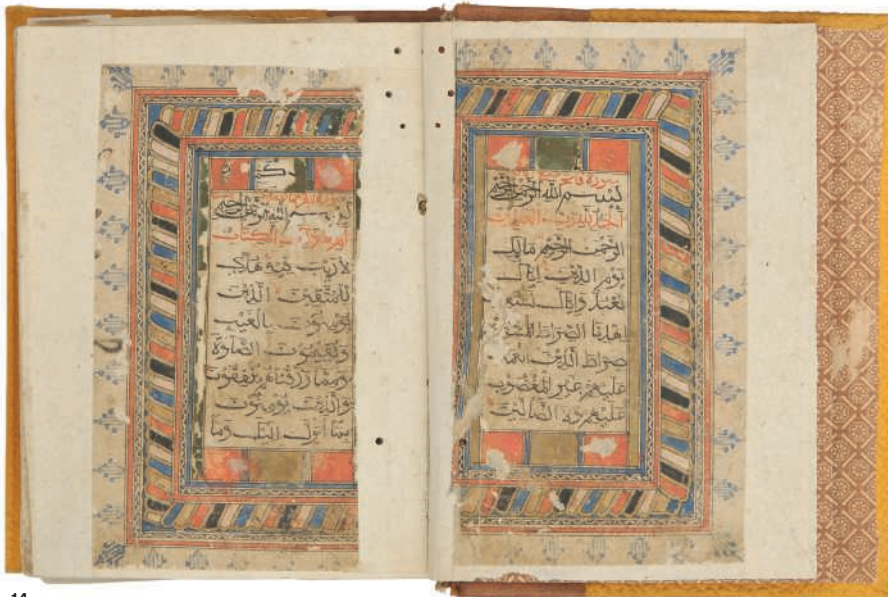 سورة فاتحة
بسم الله الرحمن الرحيم
الحمد لله رب العلمين
الرحمن الرحيم مالك
يوم الدين اياك
نعبد واياك نستعـ
اهدنا الصراط المستقـ
صراط الذين انعمـ
عليهم غير المغضوب
عليهم ولا الضالين
بسم الله الرحمن الرحيم
الكتاب
لا ريب فيه هدى
للمتقين الذين
يؤمنون بالغيب
ويقيمون الصلوة
ومما رزقناهم ينفقون
والذين يؤمنون
بما انزل اليك وما
14